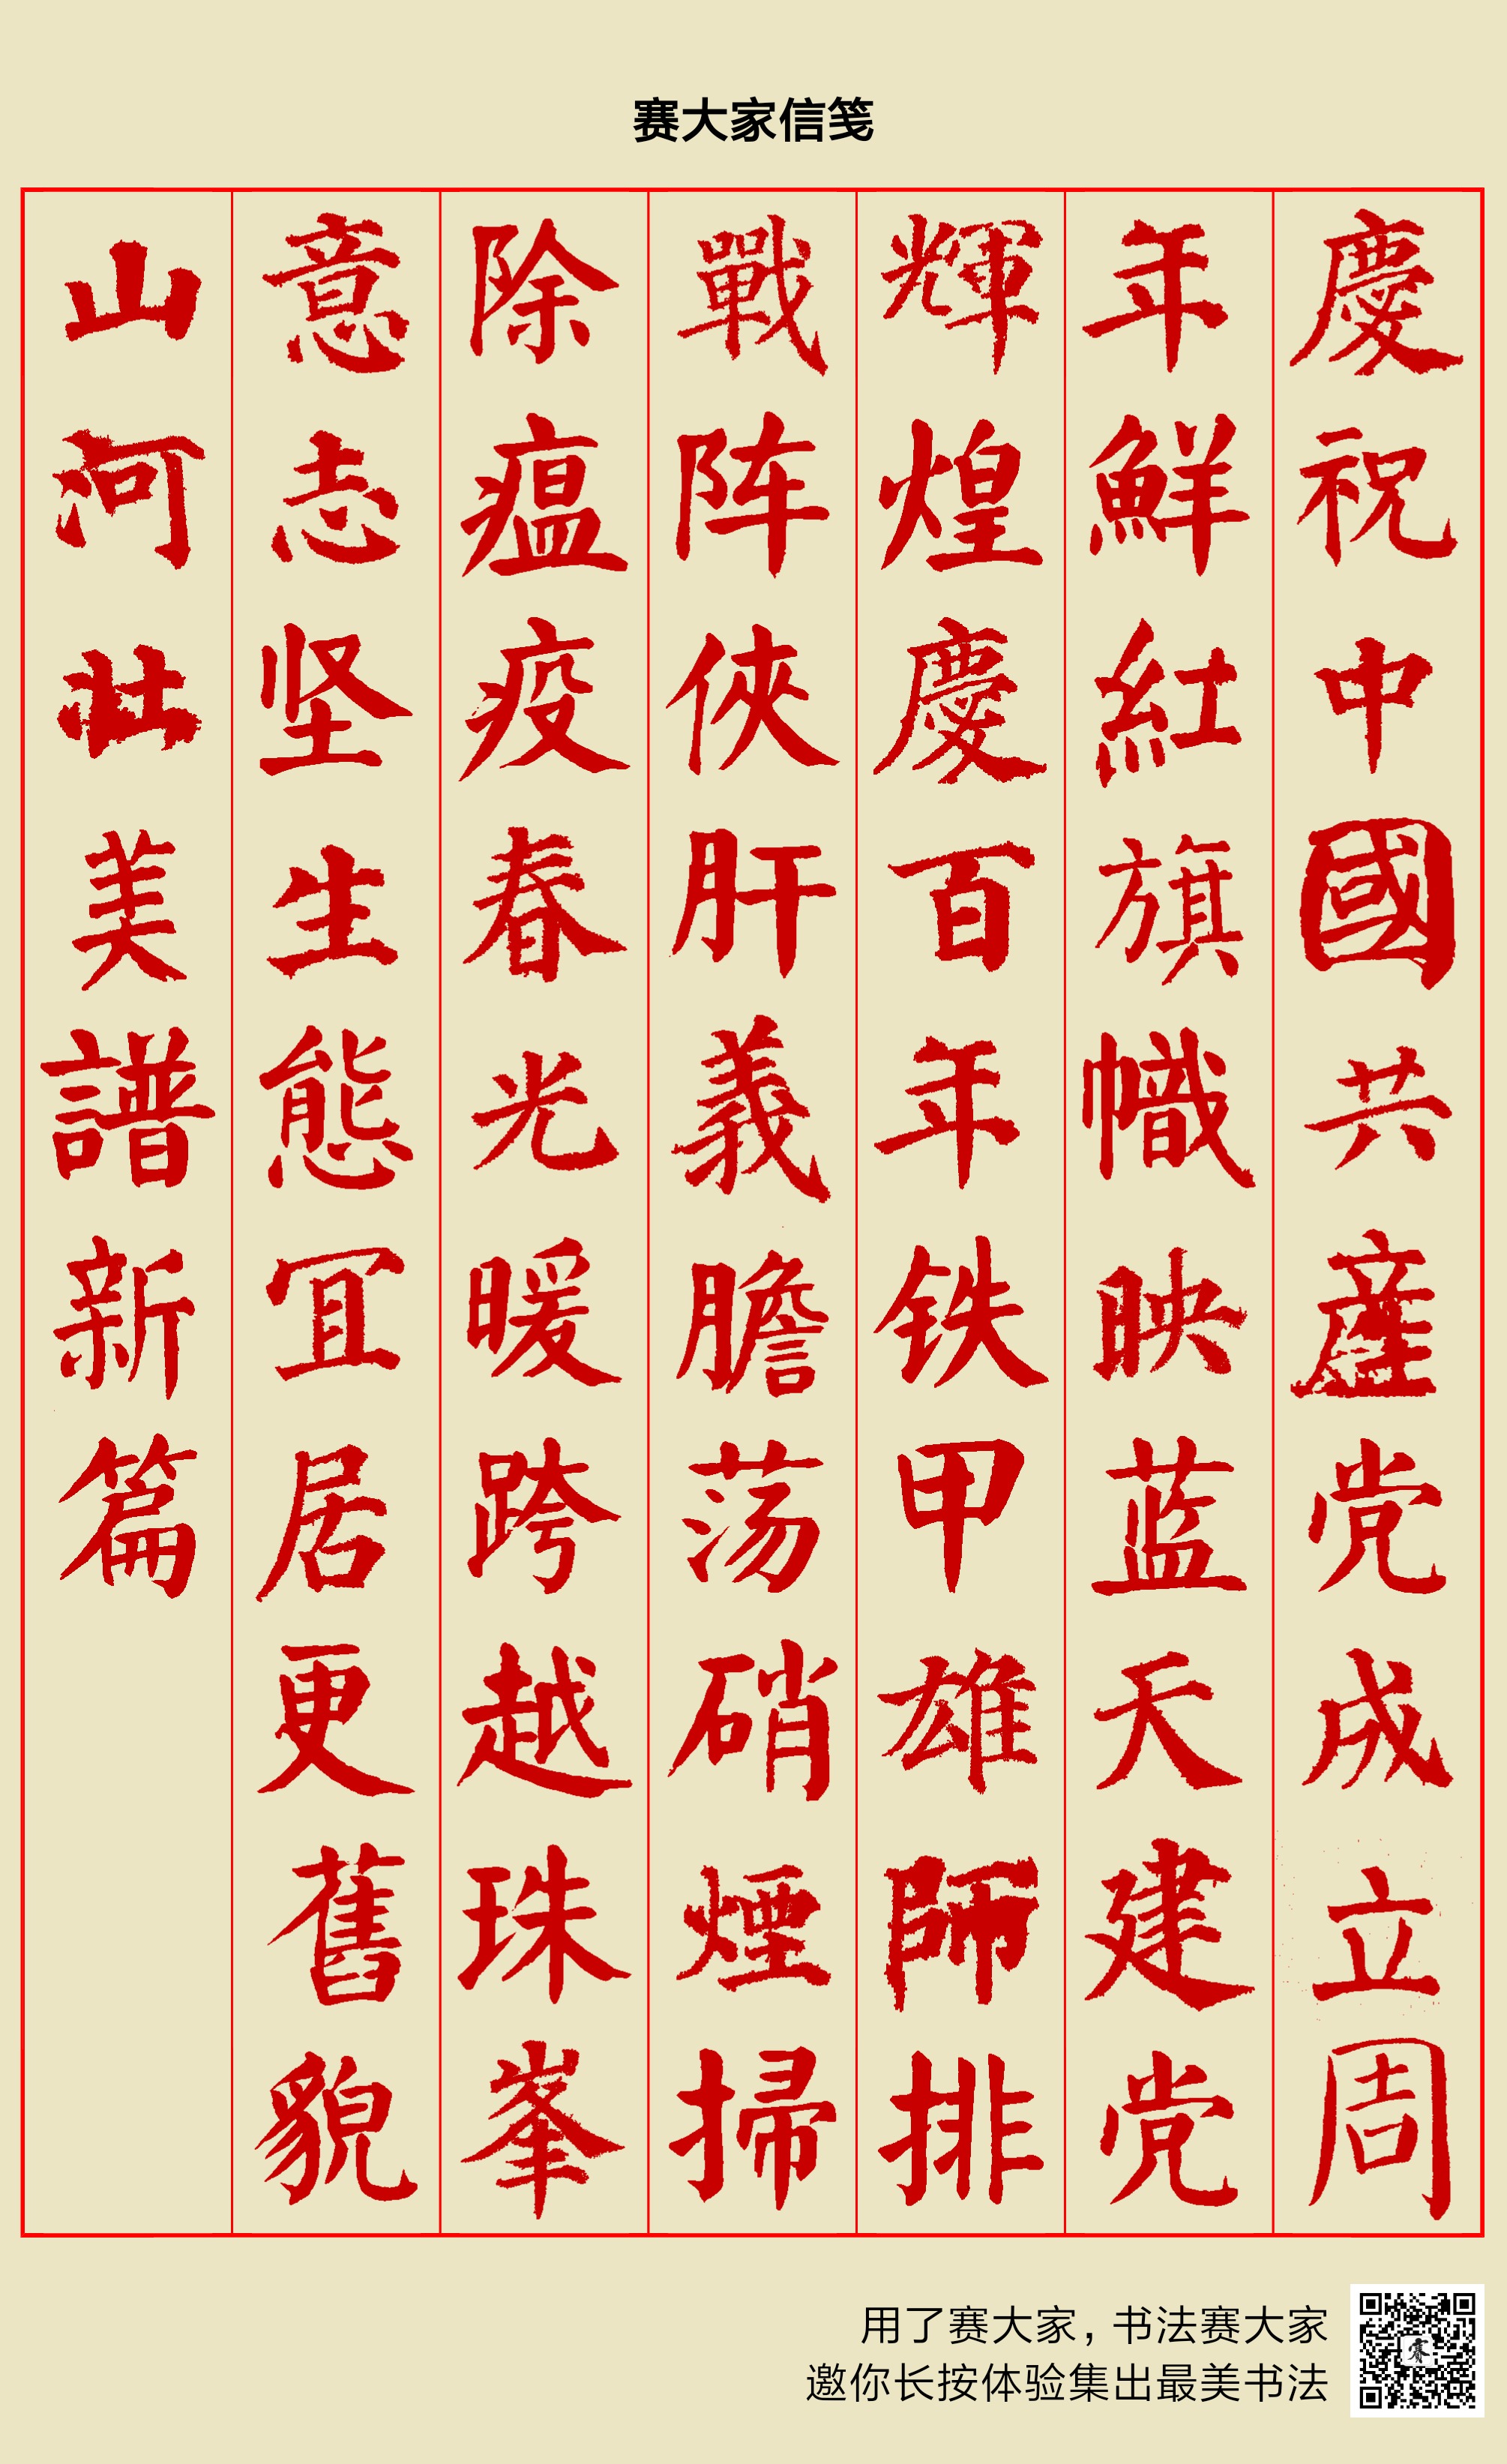 赛大家信笺
慶祝中國共産党成立周
年鮮紅旗幟映蓝天建党
輝煌慶百年铁甲雄師排
戰阵俠肝義膽荡硝煙掃
除瘟疫春光暖跨越珠峯
意志坚生態冝居更舊貌
山河壮美譜新篇
用了赛大家，书法赛大家
邀你长按体验集出最美书法
賽